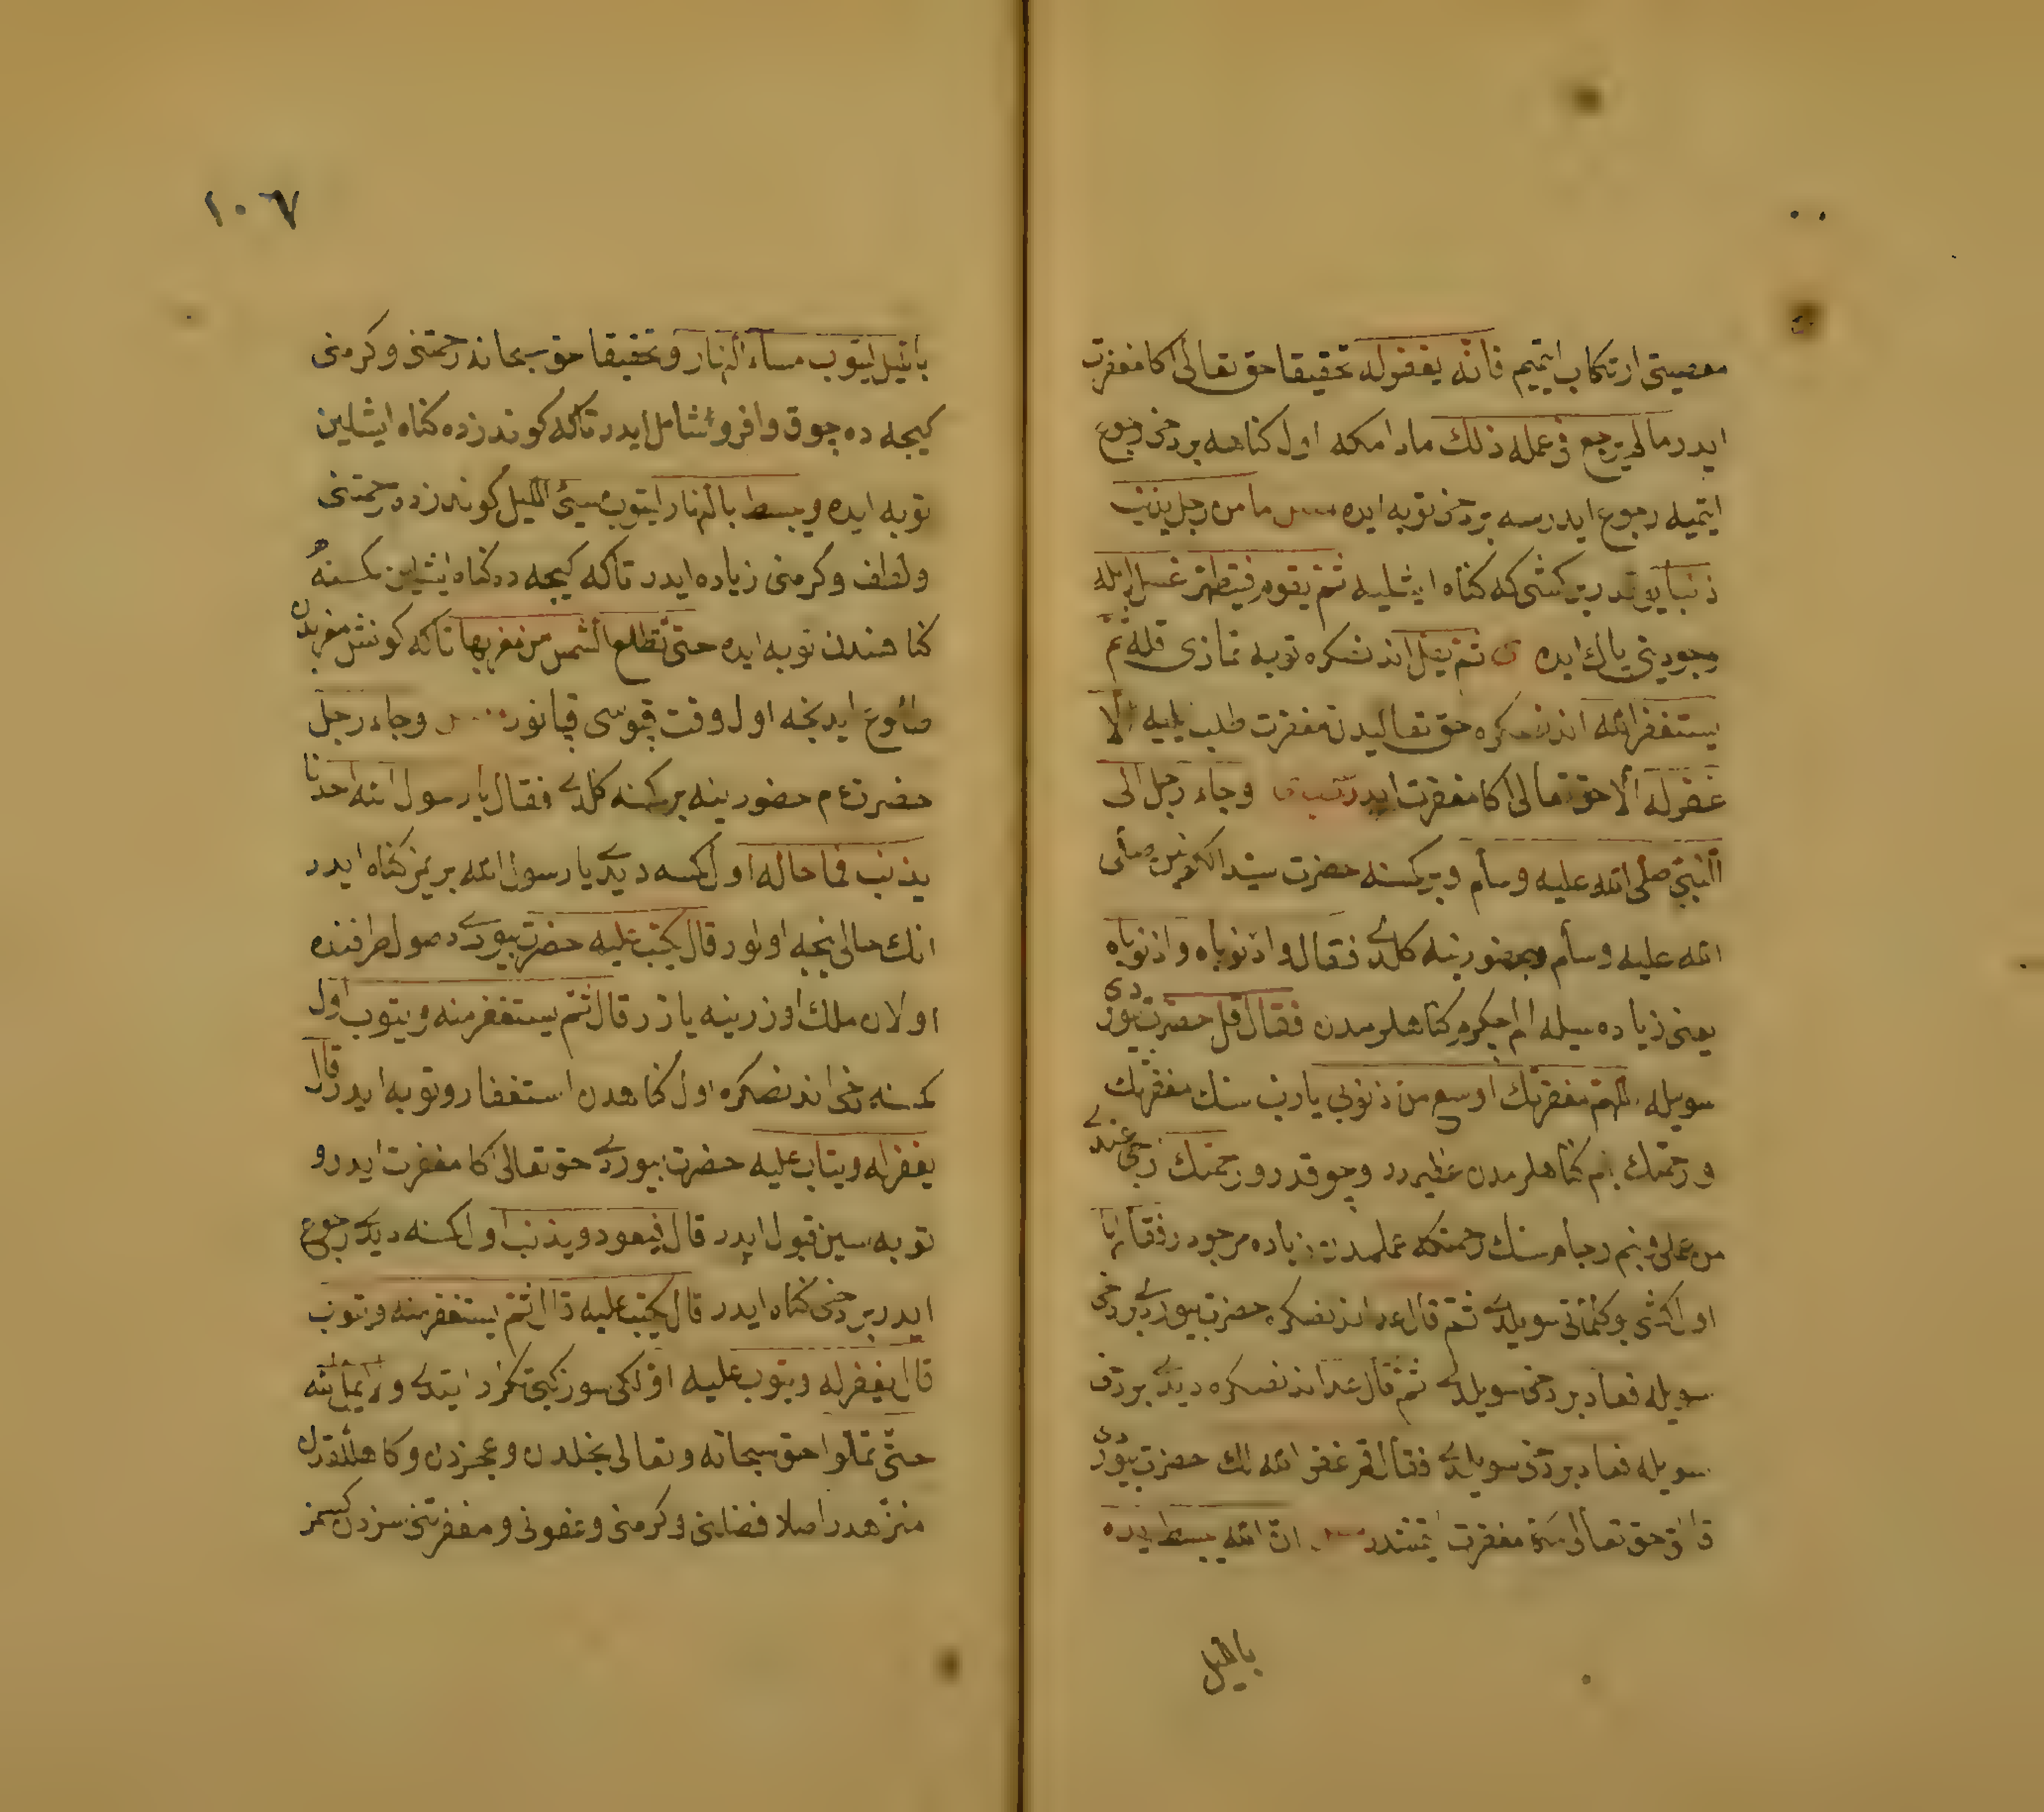 معصیتی ارتكاب ایتمیم فانّه یغفرله تحقیقا حق تعالی اكا مغفرت
ایدر مالم یرجع فی عمله ذلك مادامكه اول كناهه بر دخی رجوع
ایتمیه رجوع ایدرسه بر دخی توبه ایده ما من رجل یذنب
ذنبا یوقدر بر كشی كه كناه ایشلیه ثم یقوم فیتطهّر غسل ایله
وجودینی پاك ایده ثم یصلّی اندنصكره توبه نمازی قله ثمّ
یستغفر الله اندنصكره حق تعالیدن مغفرت طلب ایلیه الّا
غفر له الّا حق تعالی اكا مغفرت ایدر وجاء رجل الی
النبیّ صلی الله علیه وسلم و بر كمسنه حضرت سیّد الكونین صلی
الله علیه وسلم حضورینه كلدی فقال واذنوباه واذنوباه
یعنی زیاده سیله فقال قل حضرت بیوردی
سویله اللهم مغفرتك اوسع من ذنوبی یا رب سنك مغفرتك
و رحمتك بنم كناهلرمدن عظیمدر و چوقدر و رحمتك ارجی عندی
من عملی و بنم رجام سنك رحمتكه عملمدن زیاده مرجودر فقالها
اول كشی بو كلماتی سویلدی ثمّ قال عد اندنصكره حضرت بیوردی بر دخی
سویله فعاد بر دخی سویلدی ثم قال عد اندنصكره دیدی بر دخی
سویله فعاد بر دخی سویلدی فقال قم غفر الله لك حضرت بیوردی
حق تعالی سكا مغفرت ایتمشدر انّ الله یبسط یده
باللیل
١٠٦٧
باللیل لیتوب مسیء النهار و تحقیقا حق سبحانه رحمتنی و كرمنی
كیجه ده چوق و افر و شامل ایدر تاكه كوندزده كناه ایشلین
توبه ایده و یبسط بالنهار لیتوب مسیئ اللیل كوندزده رحمتنی
و لطف و كرمنی زیاده ایدر تاكه كیجه ده كناه ایشلین كمسنه
كناهندن توبه ایده حتّی تطلع الشمس من مغربها تاكه كونش مغربدن
طلوع ایدنجه اول وقت قپوسی قپانور وجاء رجل
حضرت ع م حضورینه بر كمسنه كلدی فقال یا رسول الله احدنا
یذنب فما حاله اول كمسه دیدی یا رسول الله بریمز كناه ایدر
انك حالی نیجه اولور قال یكتب علیه حضرت بیوردی صول طرافنده
اولان ملك اوزرینه یازر قال ثمّ یستغفر منه ویتوب اول
كمسنه دخی اندنصكره اول كناهدن استغفار و توبه ایدر قال
یغفر له ویتاب علیه حضرت بیوردی حق تعالی اكا مغفرت ایدر و
توبه سین قبول ایدر قال فیعود ویذنب اول كمسنه دیدی رجوع
ایدر بر دخی كناه ایدر قال یكتب علیه قال ثمّ یستغفر منه ویتوب
قال یغفر له ویتوب علیه اولكی سوز كبی تكرار ایتدی ولا یملّ الله
حتّی تملّوا حق سبحانه وتعالی بخلدن و عجزدن و كاهللقدن
منزّهدر اصلا فضلنی و كرمنی و عفونی و مغفرتنی سزدن كسمز